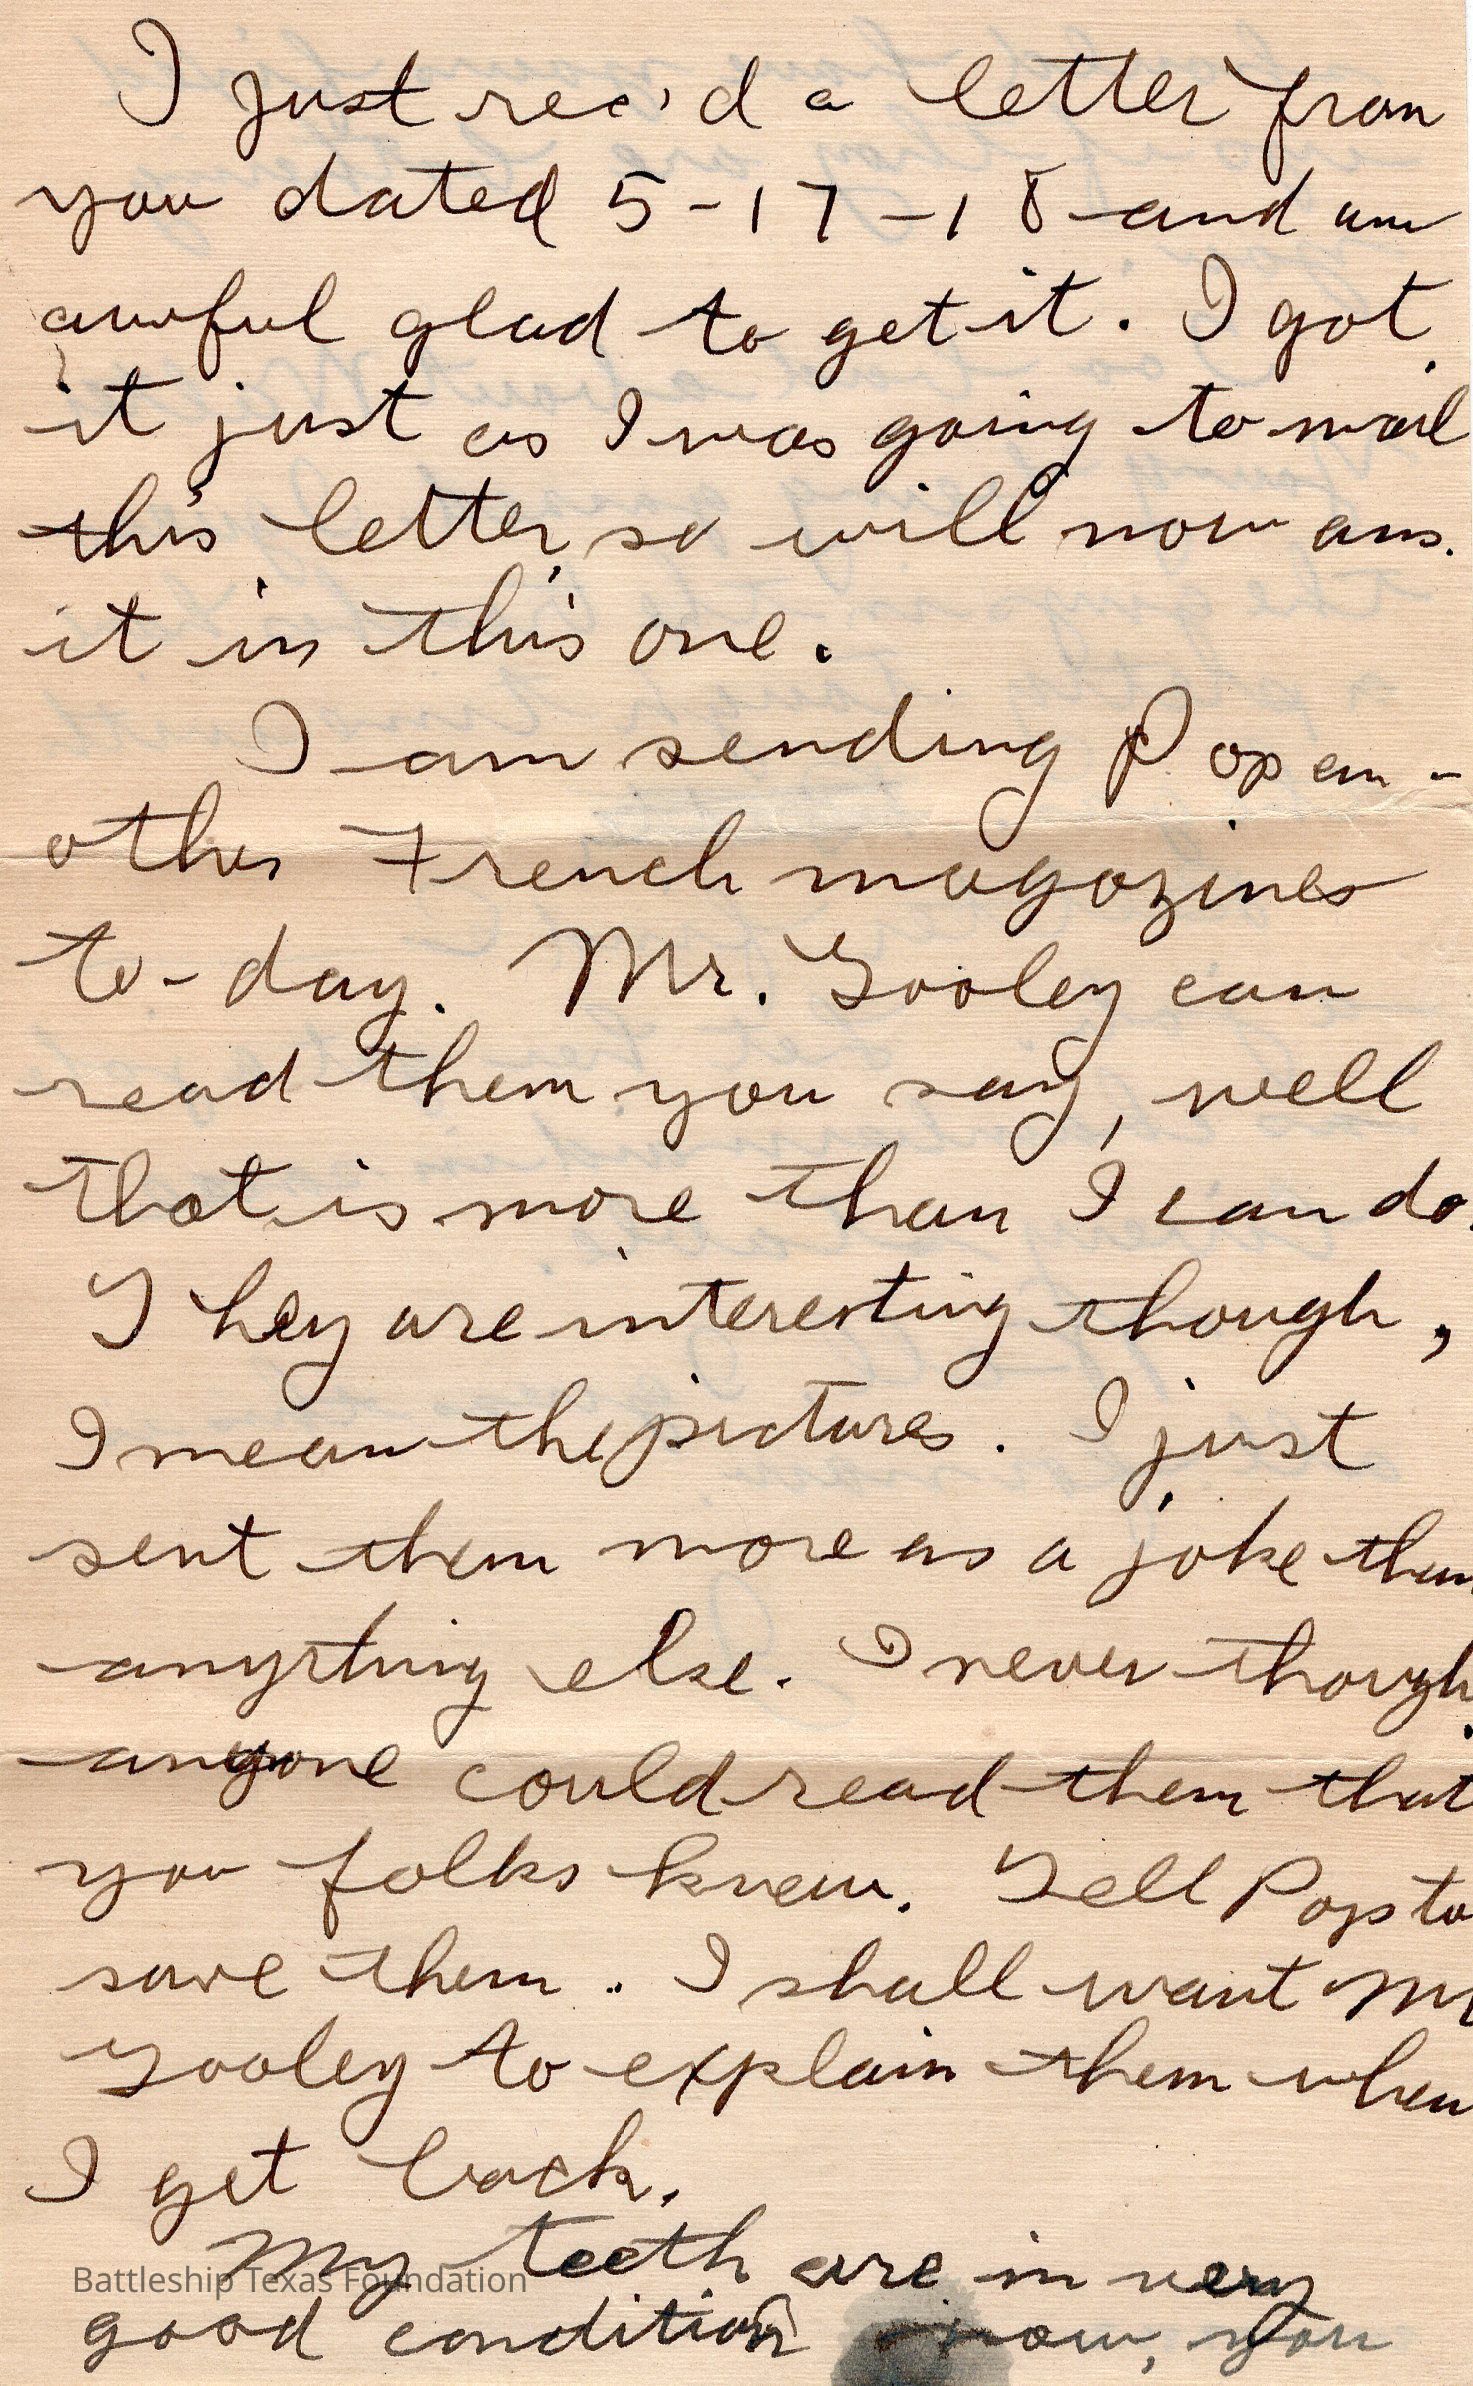 I just rec'd a letter from
you dated 5-17-18 and am
awful glad to get it. I got
it just as I was going to mail
this letter, so will now ans.
it in this one.
I am sending Pop an-
other French magozines
to-day. Mr. Tooley can
read them you say, well
that is more than I can do.
They are interesting though,
I mean the pictures. I just
sent them more as a joke than
anything else. I never though
anyone could read them that
you folks knew. Tell Pop to
save them. I shall want Mr
Tooley to explain them when
I get back.
My teeth are in very
Battleship Texas Foundation
good condition now, you